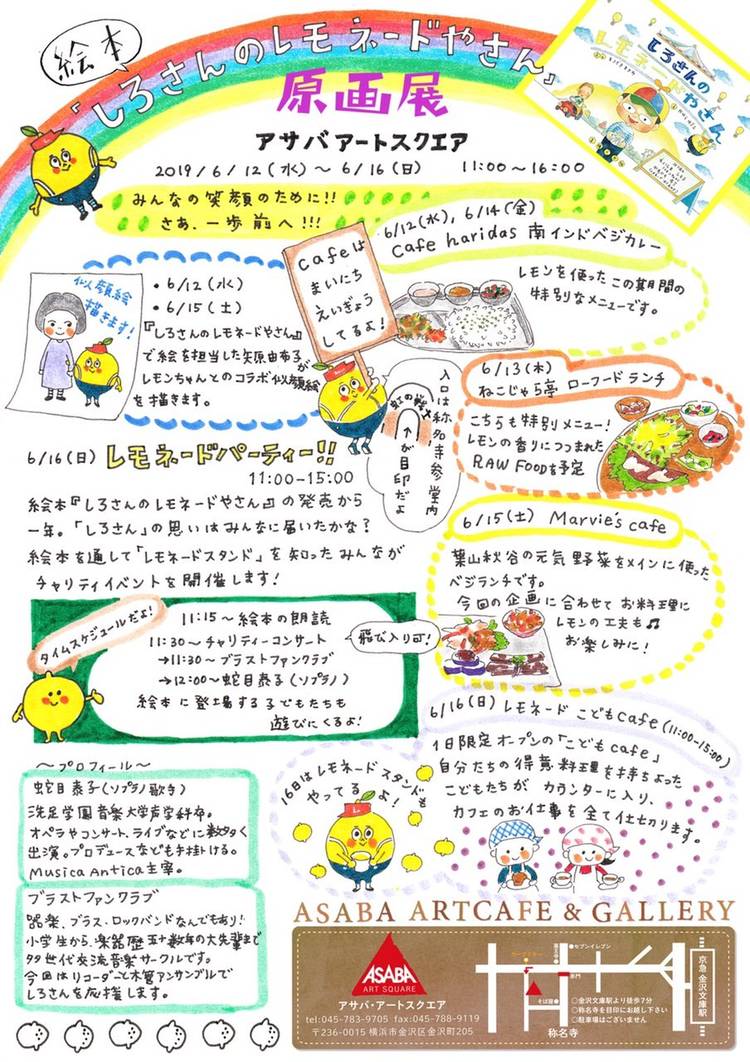 絵本
「しろさんのレモネードやさん」
原画展
しろさんの
レモネードやさん
アサバアートスクエア
2019/6/12(水)～6/16(日) 11:00～16:00
みんなの笑顔のために!!
さあ、一歩前へ!!!
似顔絵
描きます!
・6/12(水)
・6/15(土)
『しろさんのレモネードやさん』
で絵を担当した矢原由布子が
レモンちゃんとのコラボ似顔絵
を描きます。
cafeは
まいにち
えいぎょう
してるよ!
6/12(水), 6/14(金)
cafe haridas 南インドベジカレー
レモンを使ったこの期間の
特別なメニューです。
入口は称名寺参堂内
虹の戦士
↑が目印だよ
6/13(木)
ねこじゃら亭 ローフードランチ
こちらも特別メニュー!
レモンの香りにつつまれた
RAW FOODを予定
6/16(日) レモネードパーティー!!
11:00-15:00
絵本『しろさんのレモネードやさん』の発売から
一年。「しろさん」の思いはみんなに届いたかな?
絵本を通して「レモネードスタンド」を知ったみんなが
チャリティイベントを開催します!
6/15(土) Marvie's cafe
葉山秋谷の元気野菜をメインに使った
ベジランチです。
今回の企画に合わせてお料理に
レモンの工夫も♫
お楽しみに!
タイムスケジュールだよ!
11:15～絵本の朗読
11:30～チャリティーコンサート
→11:30～ブラストファンクラブ
→12:00～蛇目泰子(ソプラノ)
絵本に登場する子どもたちも
遊びにくるよ!
飛び入り可!
6/16(日)レモネードこどもcafe(11:00-15:00)
1日限定オープンの「こどもcafe」
自分たちの得意料理を持ちよった
こどもたちが カウンターに入り、
カフェのお仕事を全て仕切ります。
16日はレモネードスタンドも
やってるよ!
～プロフィール～
蛇目泰子(ソプラノ歌手)
洗足学園音楽大学声楽科卒。
オペラやコンサート、ライブなどに数多く
出演。プロデュースなども手掛ける。
Musica Antica主宰。
ブラストファンクラブ
器楽、ブラス・ロックバンドなんでもあり!
小学生から、楽器歴五十数年の大先輩まで
多世代交流音楽サークルです。
今回はリコーダーと木管アンサンブルで
しろさんを応援します。
ASABA ARTCAFE & GALLERY
ASABA
ART SQUARE
アサバ・アートスクエア
tel:045-783-9705 fax:045-788-9119
〒236-0015 横浜市金沢区金沢町205
セブンイレブン
赤門
そば屋
称名寺
京急 金沢文庫駅
○金沢文庫駅より徒歩7分
○称名寺を目印にお越し下さい
○駐車場はございません